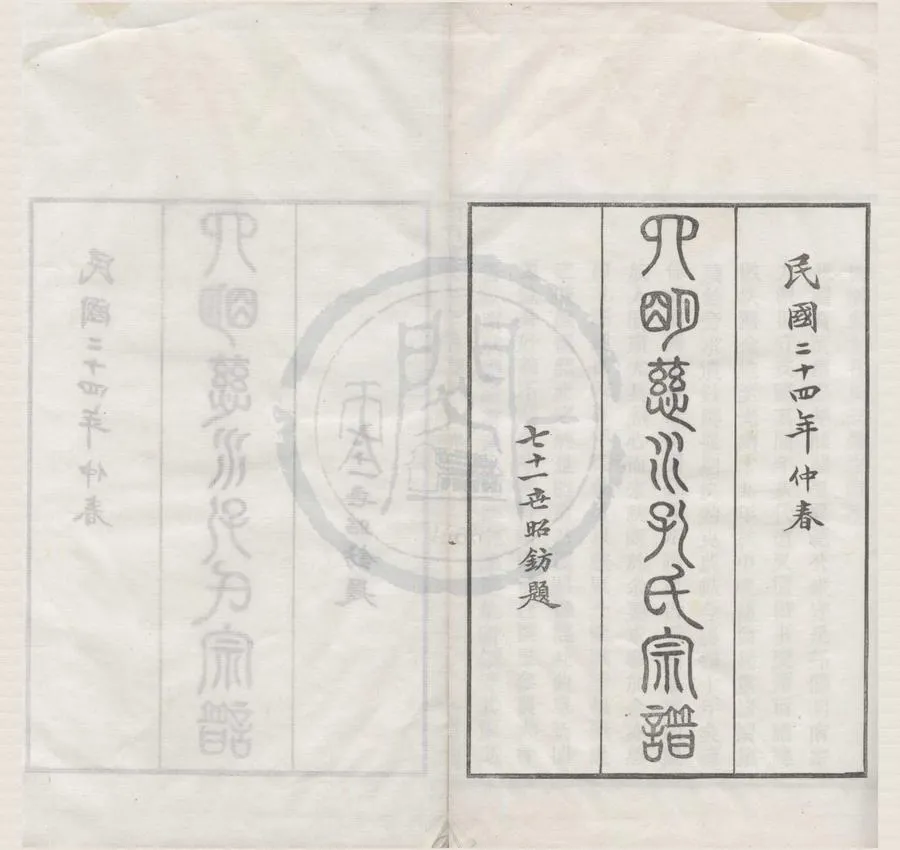 民國二十四年仲春
四明慈水孔氏宗譜
七十一世昭鈁題